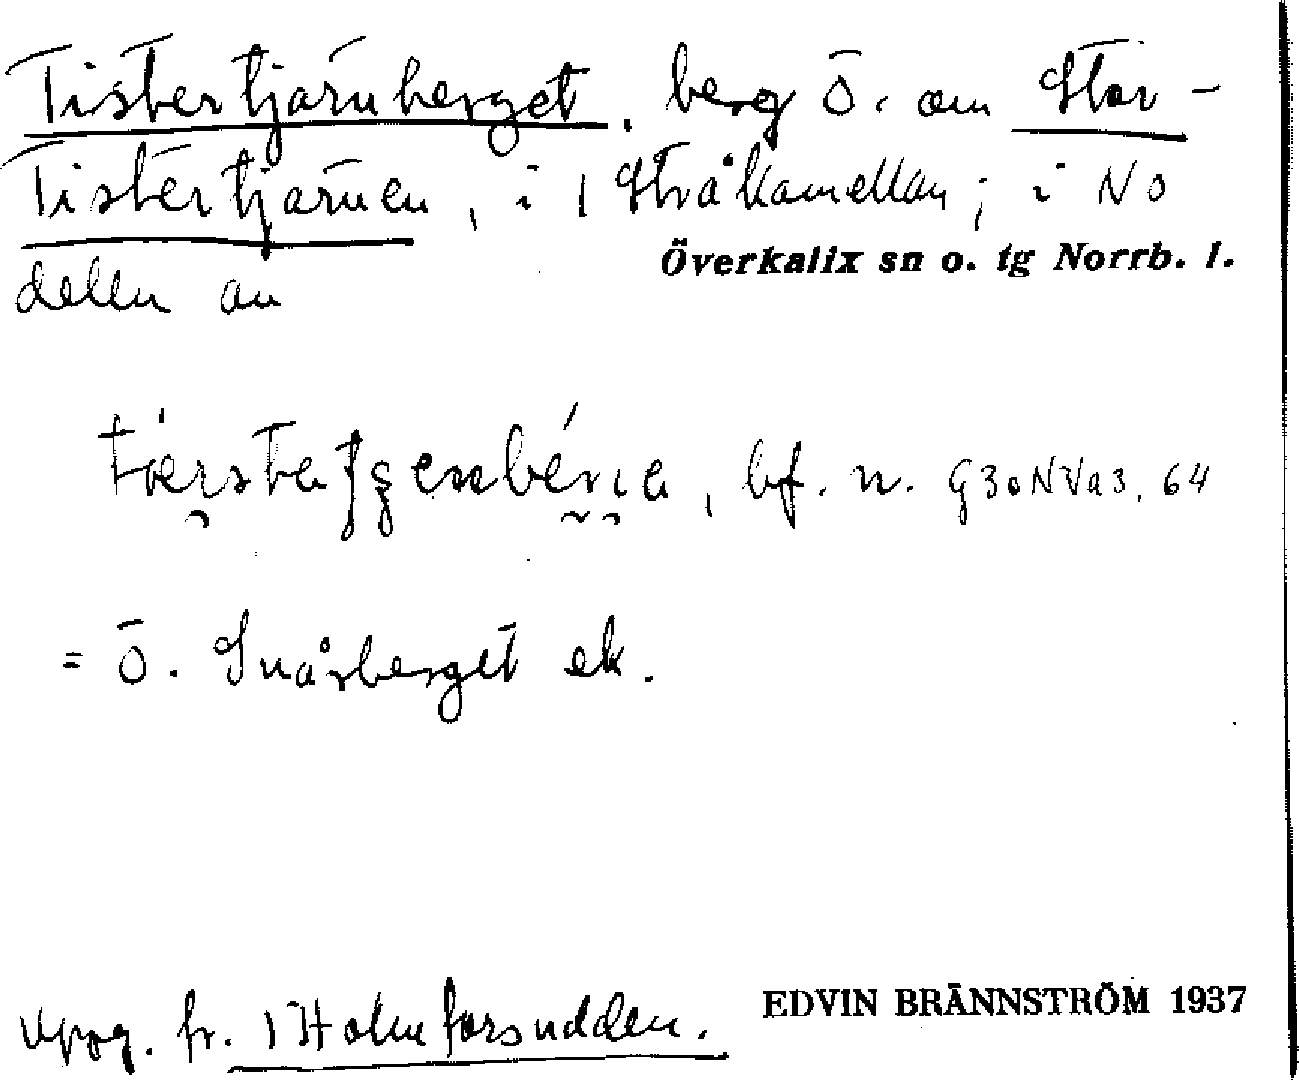 Tistertjärnberget, berg Ö. om Stor-
Tistertjärnen, i 1 Stråkamellan; i NO
Överkalix sn o. tg Norrb. l.
delen av
bf. n. G30NVa3, 64
= Ö. Snårberget ek.
uppg. fr. 1 Holmforsudden.
EDVIN BRÄNNSTRÖM 1937